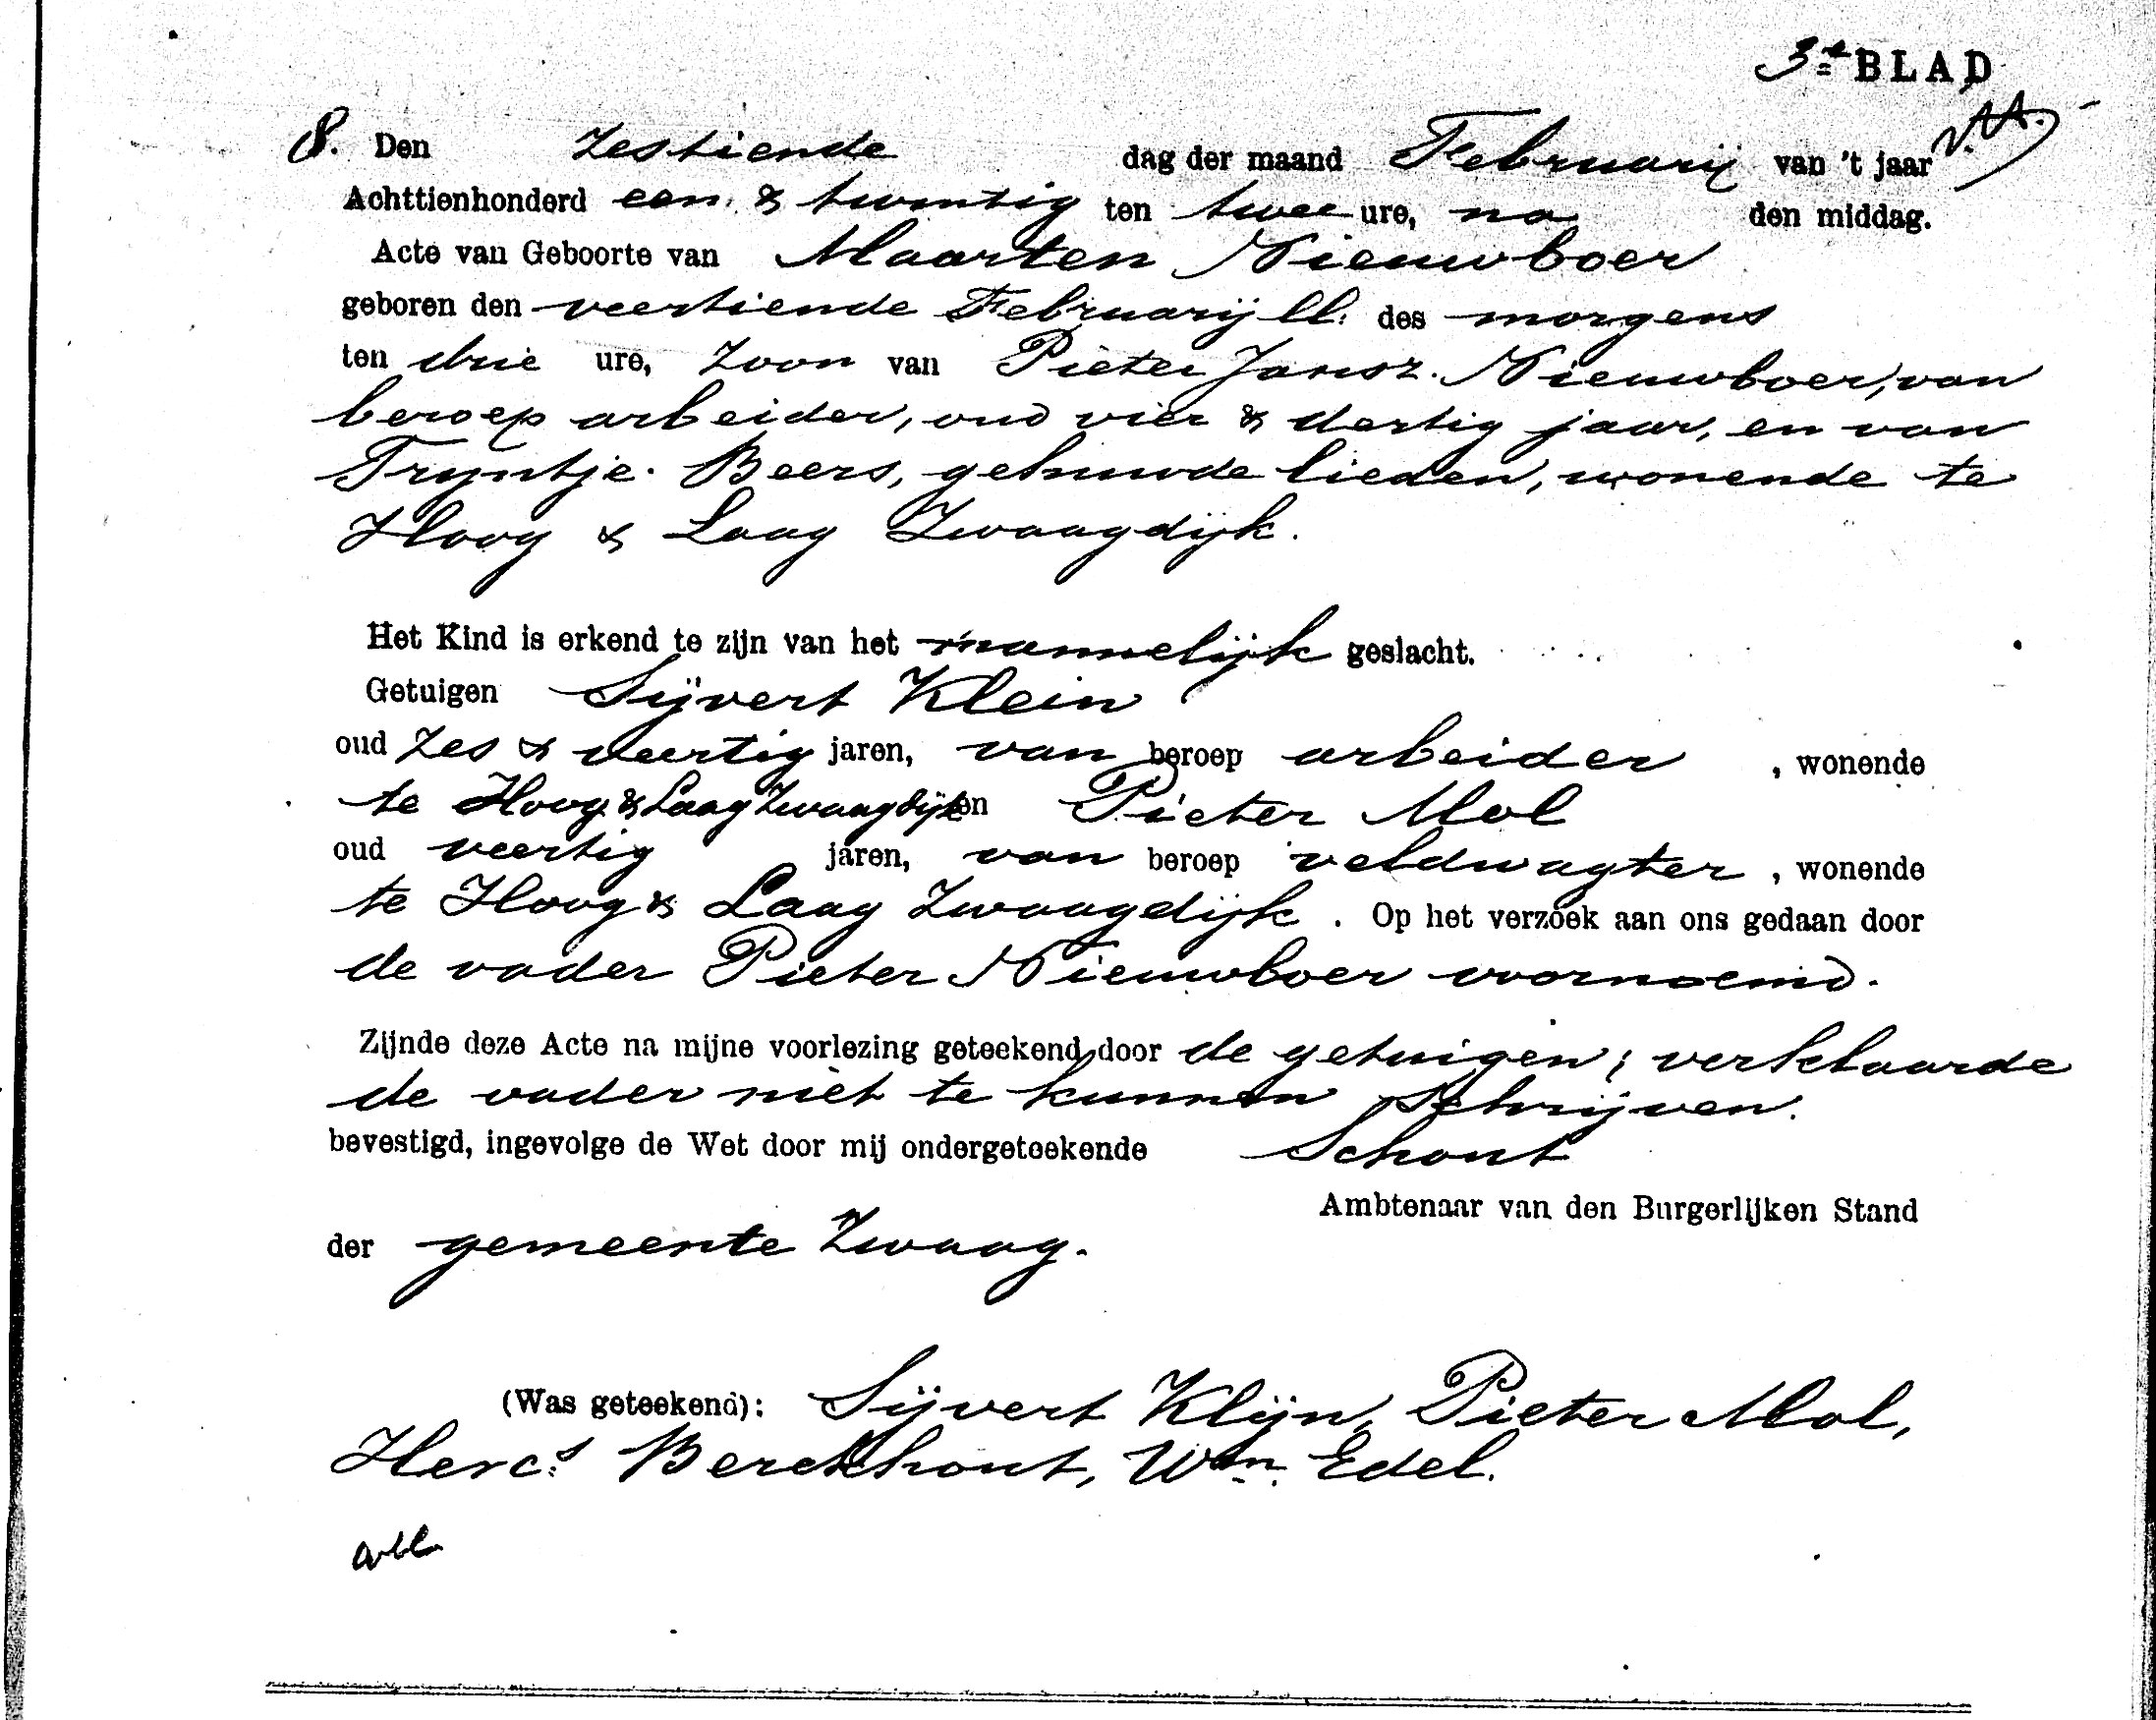 3e BLAD
8. Den zestiende dag der maand Februarij van 't jaar
Achttienhonderd een & twintig ten twee ure, na den middag.
Acte van Geboorte van Maarten Nieuwboer
geboren den veertiende Februarij ll. des morgens
ten drie ure, Zoon van Pieter Jansz. Nieuwboer, van
beroep arbeider, oud vier & dertig jaar, en van
Trijntje Beers, gehuwde lieden, wonende te
Hoog & Laag Zwaagdijk.
Het Kind is erkend te zijn van het mannelijk geslacht.
Getuigen Sijvert Klein
oud zes & veertig jaren, van beroep arbeider, wonende
te Hoog & Laag Zwaagdijk en Pieter Mol
oud veertig jaren, van beroep veldwagter, wonende
te Hoog & Laag Zwaagdijk. Op het verzoek aan ons gedaan door
de vader Pieter Nieuwboer voornoemd.
Zijnde deze Acte na mijne voorlezing geteekend door de getuigen; verklaarde
de vader niet te kunnen schrijven.
bevestigd, ingevolge de Wet door mij ondergeteekende Schout
Ambtenaar van den Burgerlijken Stand
der gemeente Zwaag.
(Was geteekend): Sijvert Klijn, Pieter Mol,
Hercs Berckhout, Wm Edel.